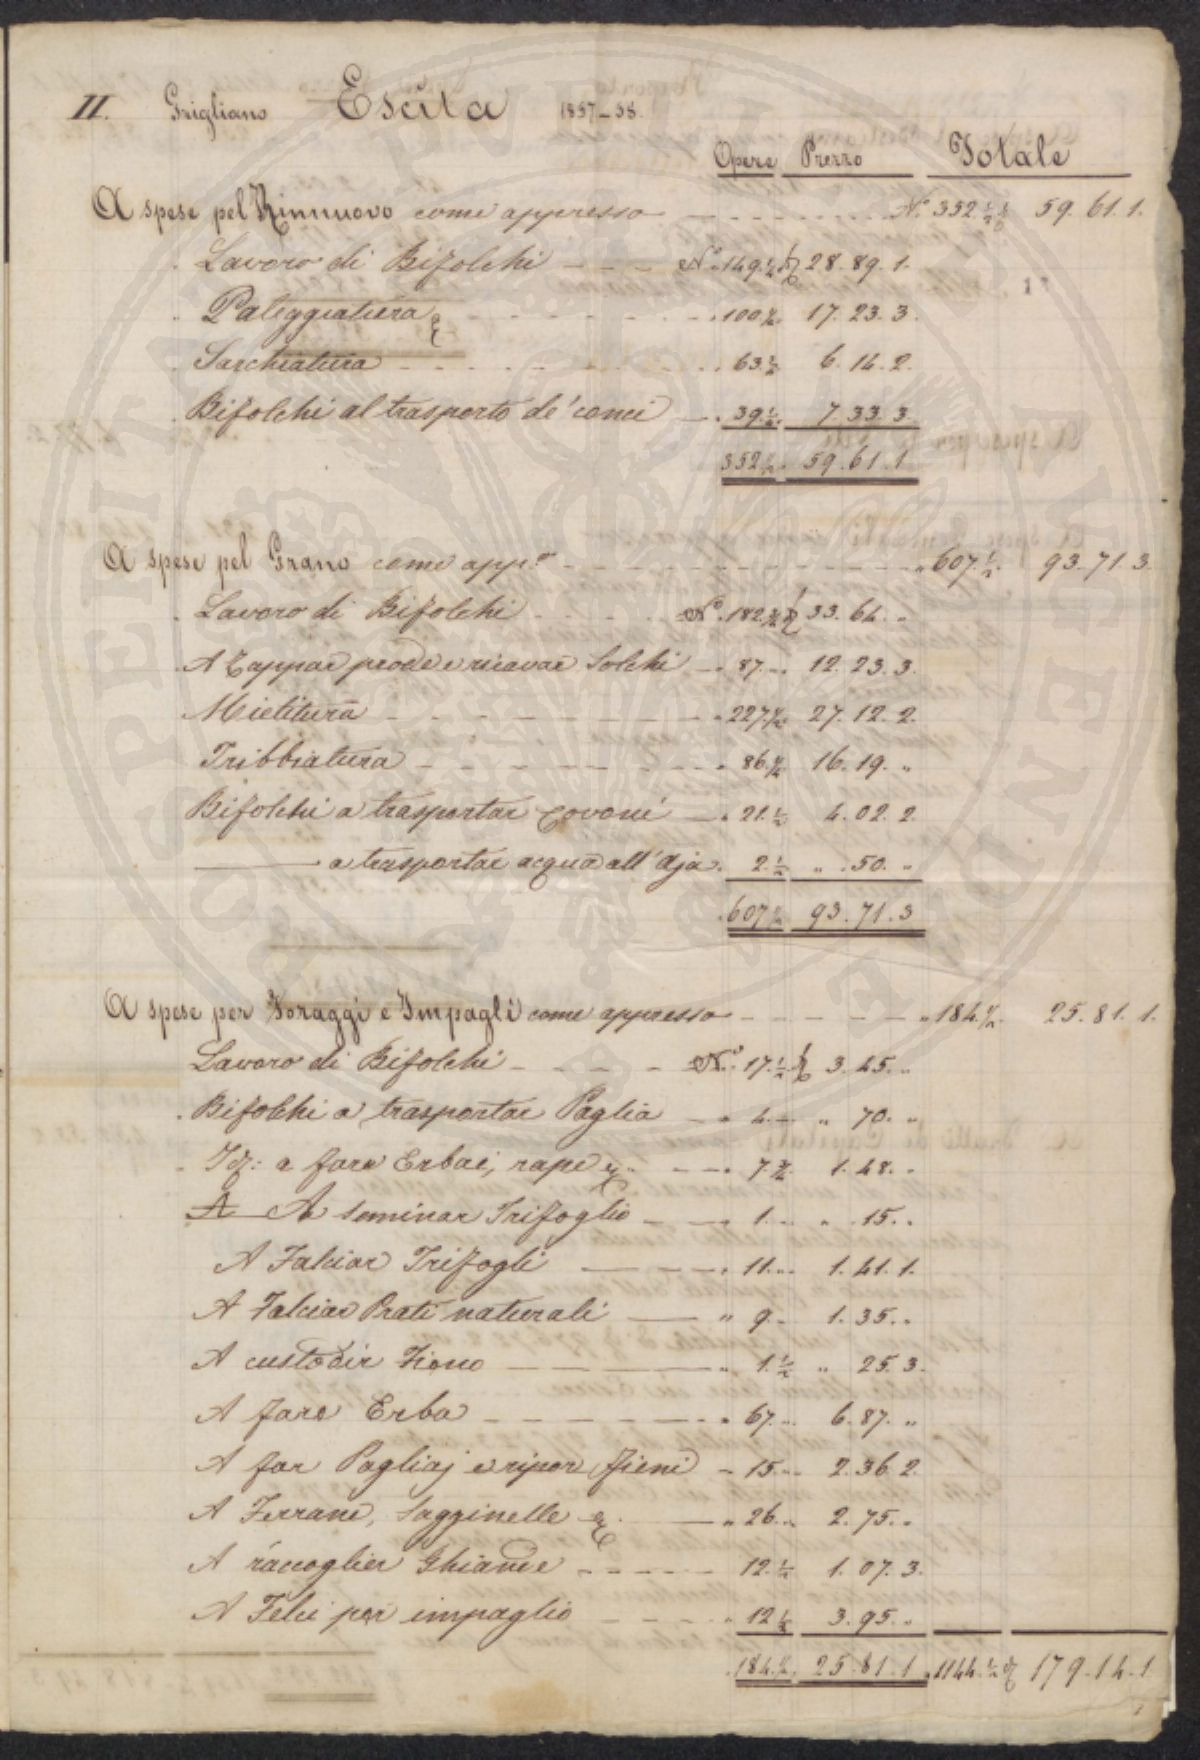 II. Grigliano Escita 1857-58.
Opere Prezzo Totale
A spese pel Rinnuovo come appresso N.° 352 1/2 59. 61. 1.
Lavoro di Bifolchi N.° 149. 1/2 28. 89. 1.
Paleggiatura 100 17. 23. 3.
Sarchiatura 63. 6. 14. 2.
Bifolchi al trasporto de' conci 39. 7. 33. 3
352 59. 61. 1
A spese pel Grano come app.° 607. 1/2. 93. 71. 3.
Lavoro di Bifolchi N.° 182. 33. 64. "
A Zappar prode e ricavar Solchi 87. 12. 23. 3.
Mietitura 227. 27. 12. 2.
Tribbiatura 86. 16. 19. "
Bifolchi a trasportar covoni 21. 1/2 4. 02. 2
a trasportar acqua all'Aja 2. 1/2 " . 50. "
607 93. 71. 3
A spese per Foraggi e Impagli come appresso 184. 25. 81. 1.
Lavoro di Bifolchi N.° 17. 1/2 3. 45. "
Bifolchi a trasportar Paglia 4. " 70. "
Id: a fare Erbai, rape 7. 1. 48. "
A Seminar Trifoglio 1. " . 15. "
A Falciar Trifogli 11. 1. 41. 1.
A Falciar Prati naturali " 9. 1. 35. "
A custodir Fieno " 1. 1/2 " 25. 3.
A fare Erba 67. 6. 87. "
A far Pagliaj e ripor fieni 15. 2. 36. 2.
A Ferrane, Sagginelle " 26. 2. 75. "
A raccoglier Ghiande 12. 1/2 1. 07. 3.
A Felci per impaglio " 12 1/2 3. 95. "
184. 25. 81. 1 1144. 1/2 179. 14. 1